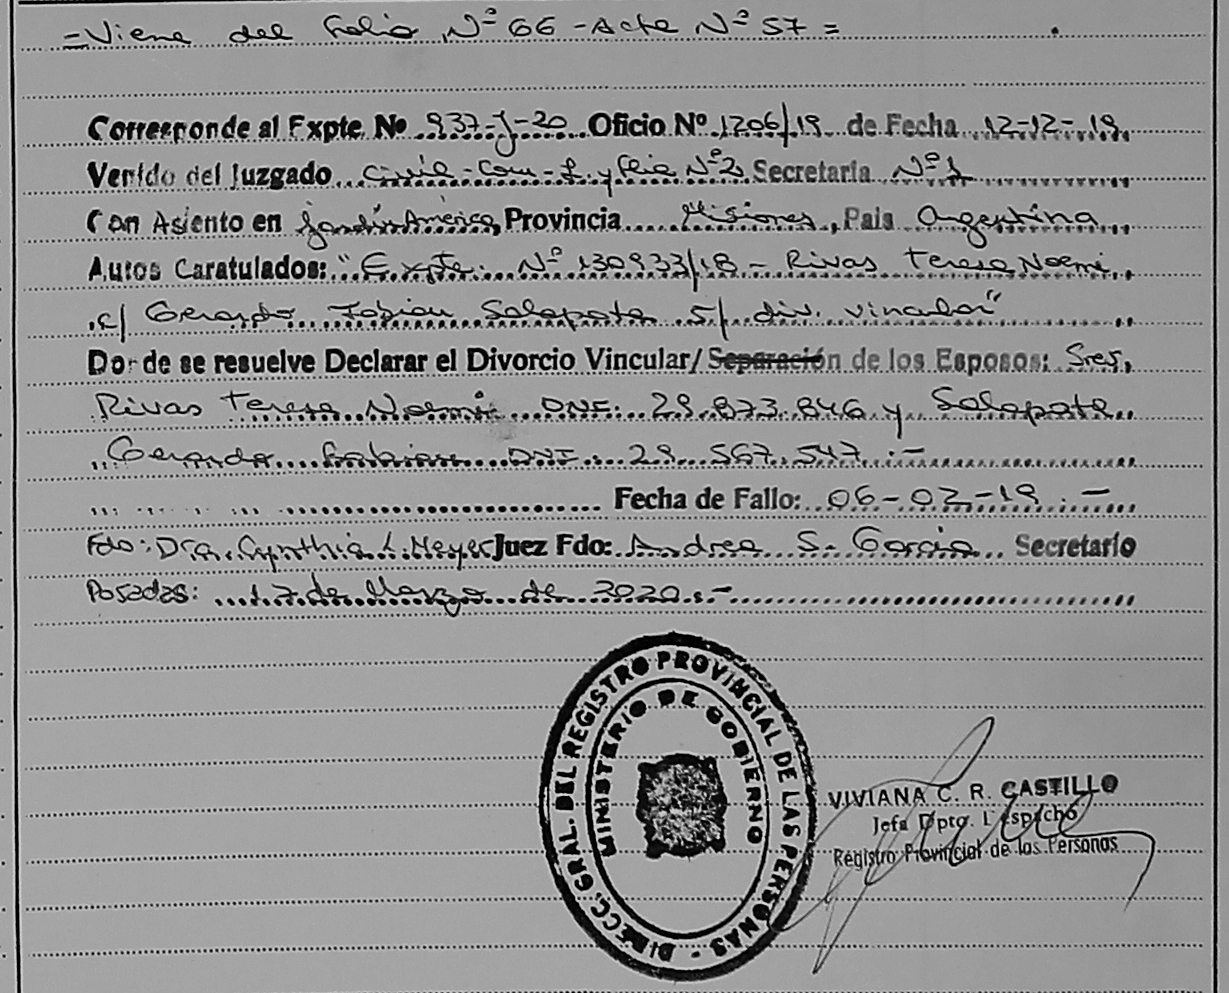 =Viene del Folio Nº 66 - Acta Nº 57=
Corresponde al Expte. Nº 937-J-20 Oficio Nº 1206/19 de Fecha 12-12-19
Venido del Juzgado Civil-Com-L y Flia Nº2 Secretaria Nº1
Con Asiento en Jardín América, Provincia Misiones, Pais Argentina
Autos Caratulados: "Expte. Nº 130933/18 - Rivas Teresa Noemi
c/ Gerardo Fabian Salapata S/ div. vincular"
Donde se resuelve Declarar el Divorcio Vincular/ Separación de los Esposos: Sres,
Rivas Teresa Noemi DNI: 29.873.846 y Salapata
Gerardo Fabian DNI: 29.567.547.-
Fecha de Fallo: 06-02-19.-
Fdo: Dra. Cynthia L. Meyer Juez Fdo: Andrea S. Garcia Secretario
Posadas: 17 de Marzo de 2020.-
DIRECC. GRAL. DEL REGISTRO PROVINCIAL DE LAS PERSONAS -
MINISTERIO DE GOBIERNO
VIVIANA C. R. CASTILLO
Jefa Dpto. Despacho
Registro Provincial de las Personas